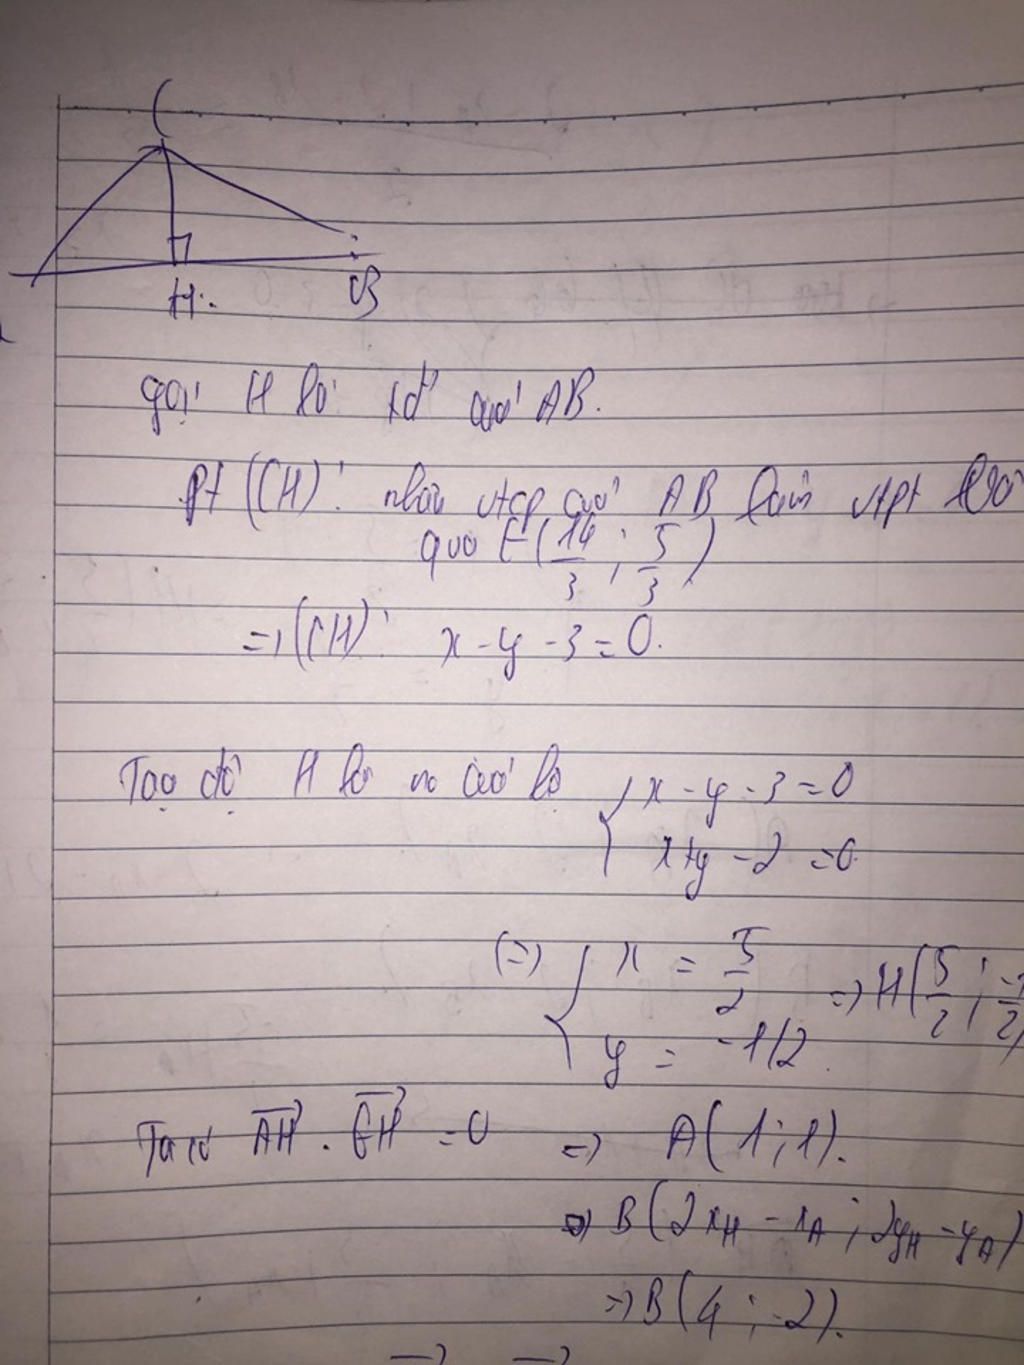 C
H.
B
gọi H là tđ của AB.
Pt (CH): nhận vtcp của AB làm vtpt
qua E(14/3 ; 5/3)
=> (CH): x - y - 3 = 0.
Toạ độ H là no của hệ { x - y - 3 = 0
x + y - 2 = 0
(=> { x = 5/2 => H(5/2 ; -1/2)
y = -1/2.
Ta có AH→ . CH→ = 0 => A(1 ; 1).
=> B(2xH - xA ; 2yH - yA)
=> B(4 ; -2).